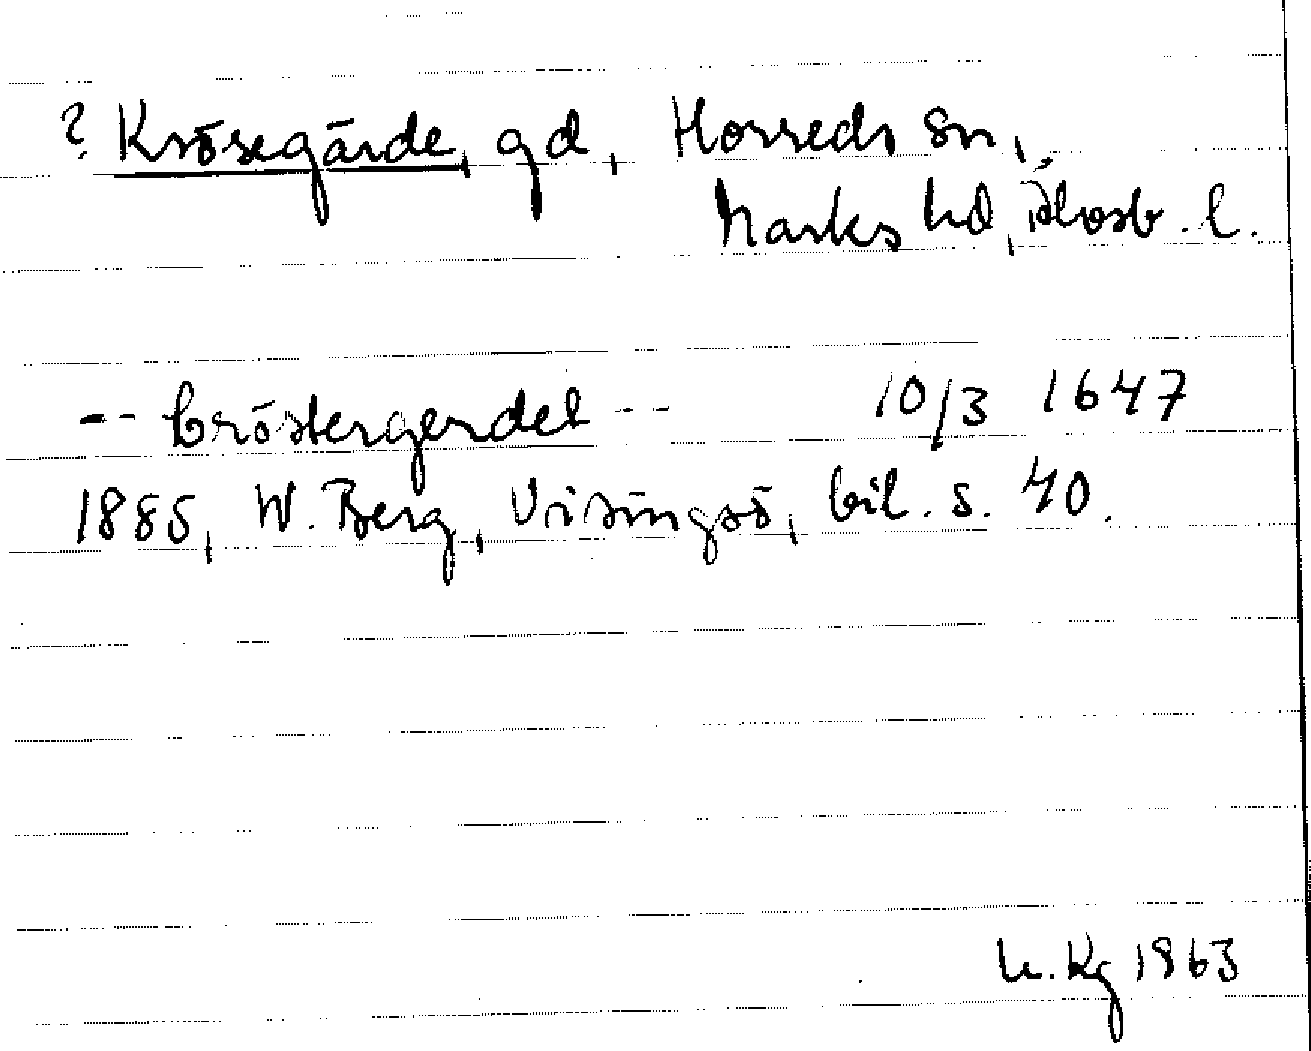 ? Krösegärde, gd, Horreds sn,
Marks hd, Älvsb. l.
-- Cröstergerdet -- 10/3 1647
1885, W. Berg, Visingsö, bil. s. 40.
h. Kg 1963